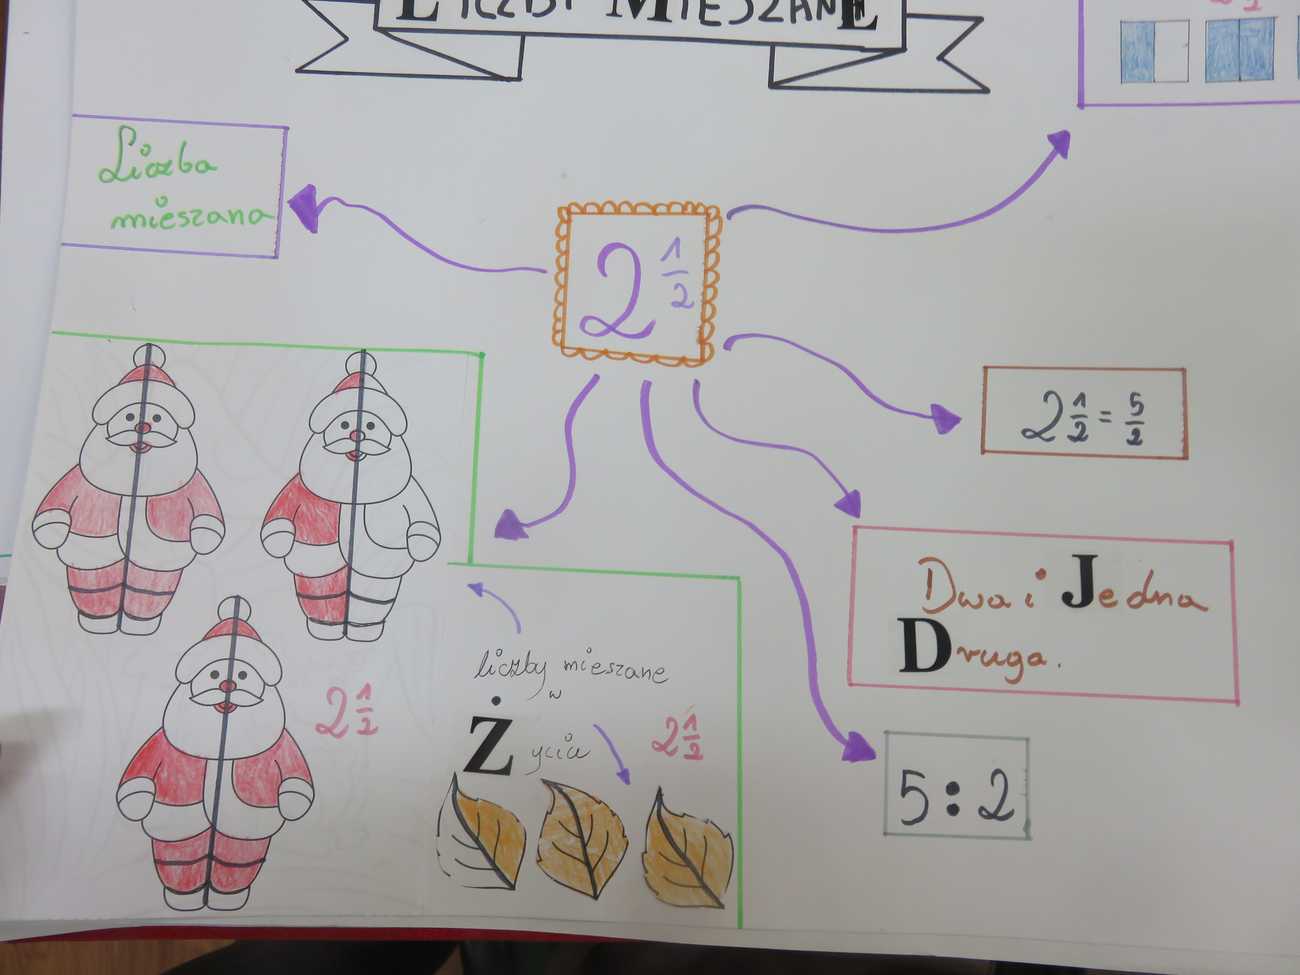 LICZBY MIESZANE
Liczba
mieszana
2 1/2
2 1/2 = 5/2
Dwa i Jedna
Druga.
5 : 2
liczby mieszane
w
Życiu
2 1/2
2 1/2